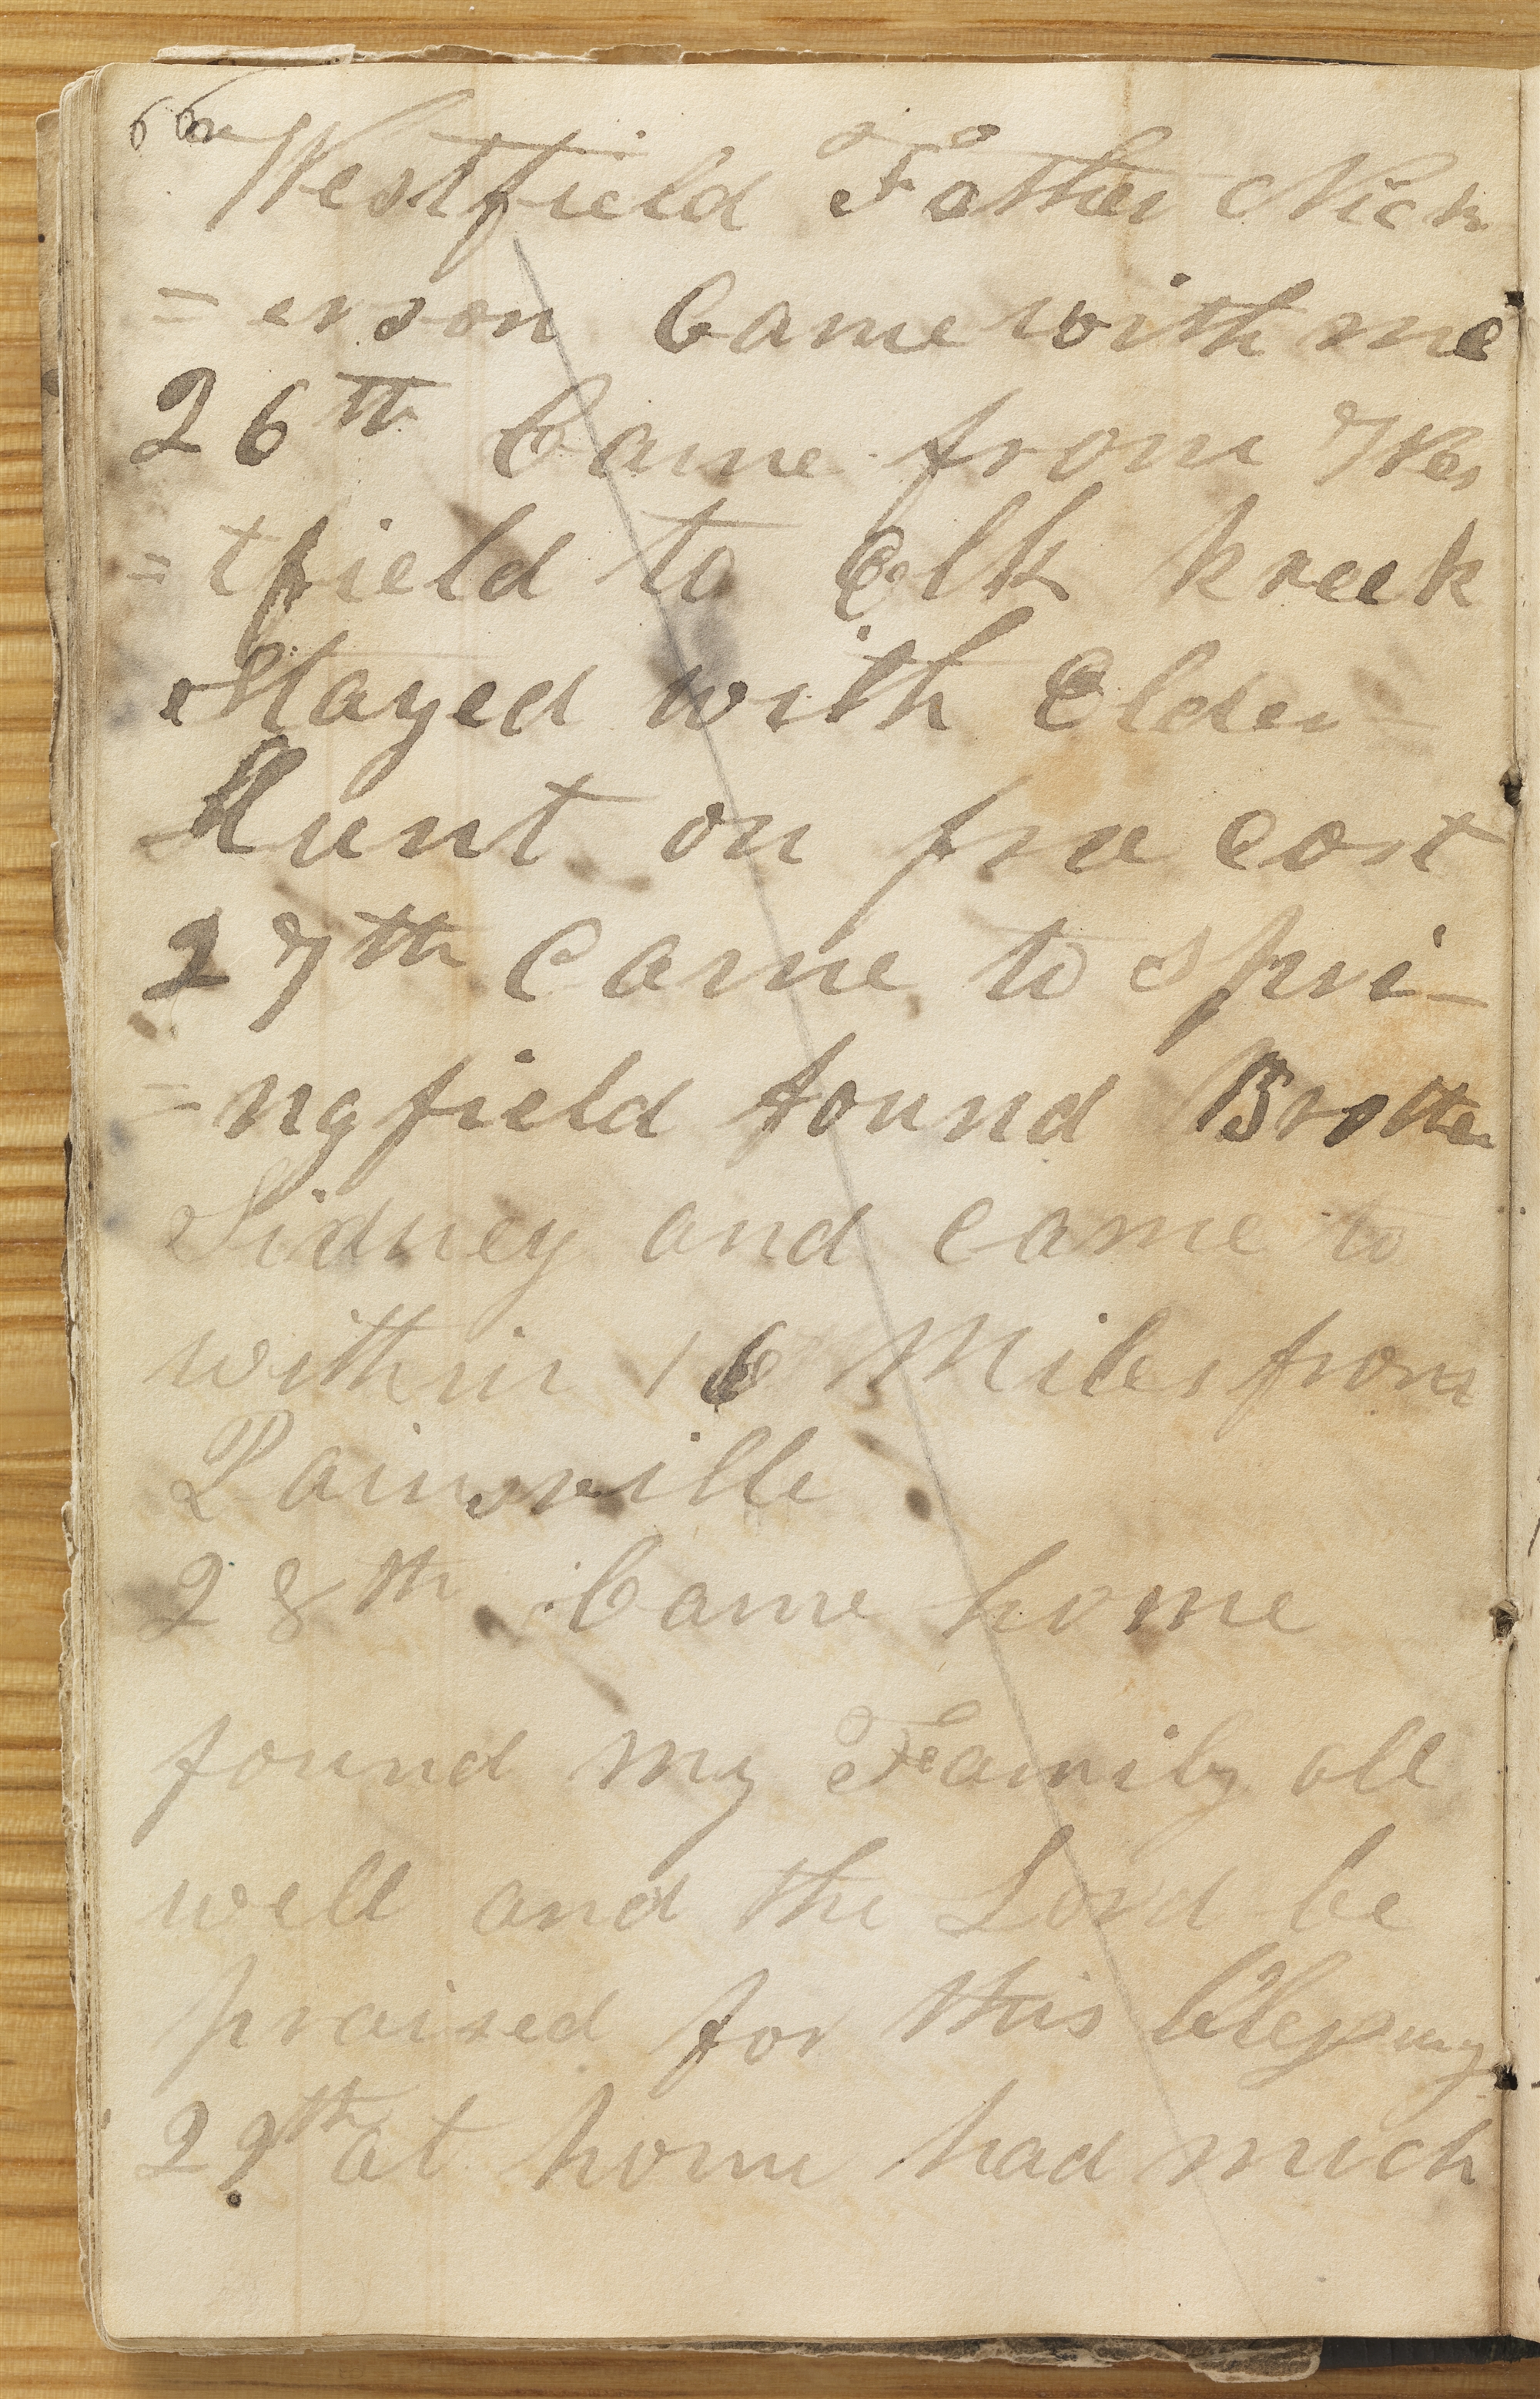 66
Westfield Father Nick
=erson Came with me
26th Came from Wes
=tfield to Elk kreek
Stayed with Elder
Hunt on free cost
27th Came to Spri-
=ngfield found Brother
Sidney and came to
within 16 Miles from
Painsville
28th Came home
found my Family all
well and the Lord be
praised for this blessing
29th at home had much